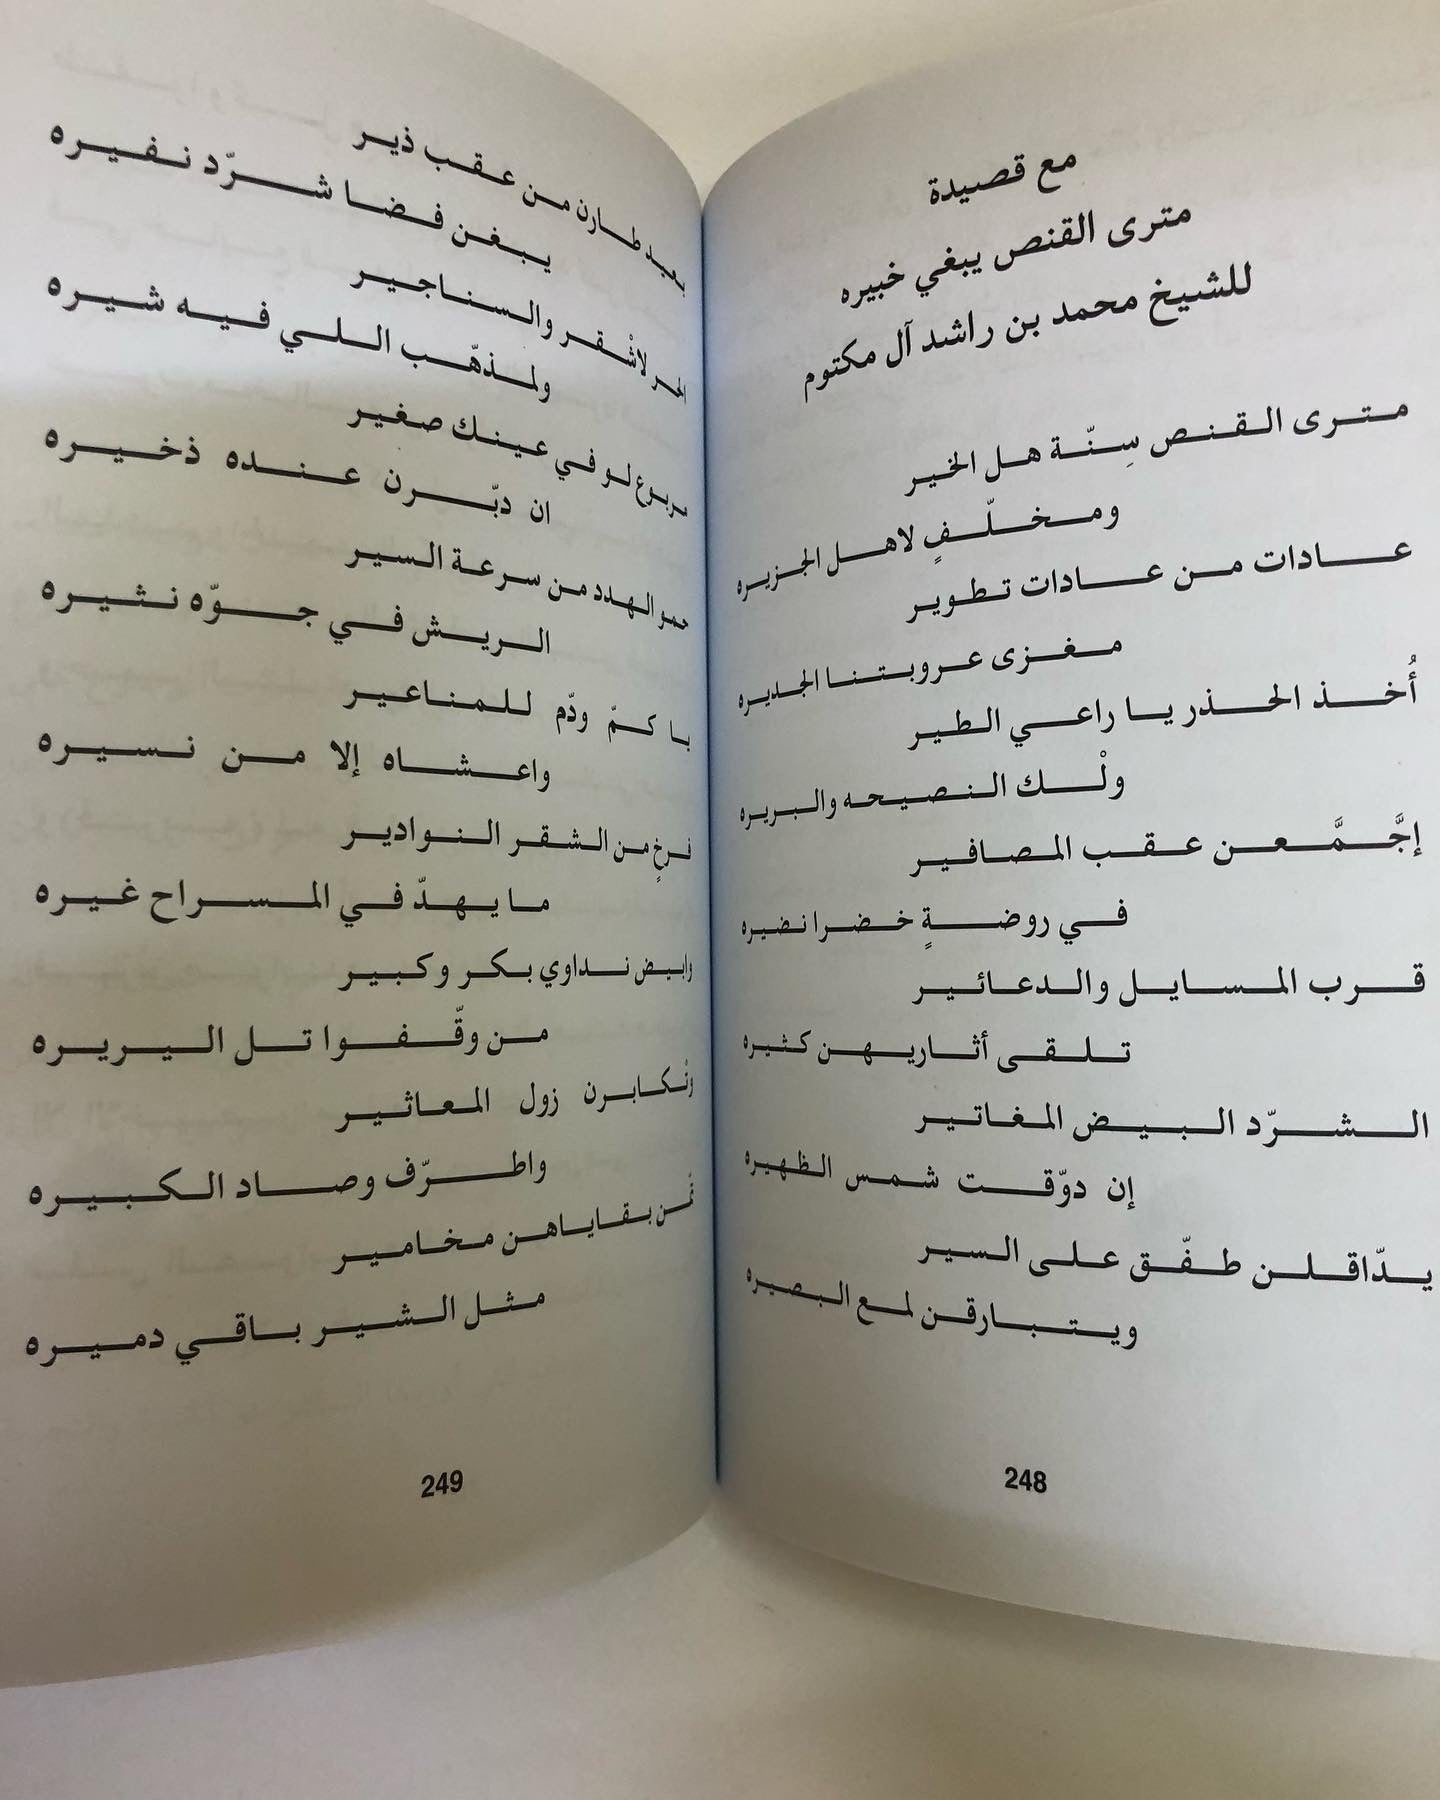 مع قصيدة
مترى القنص يبغي خبيره
للشيخ محمد بن راشد آل مكتوم
مترى القنص سِنّة هل الخير
ومخلّفٍ لاهل الجزيره
عادات من عادات تطوير
مغزى عروبتنا الجديره
أُخذ الحذر يا راعي الطير
ولْك النصيحه والبريره
إجَّمَّعن عقب المصافير
في روضةٍ خضرا نضيره
قرب المسايل والدعائير
تلقى أثاريهن كثيره
الشرّد البيض المغاتير
إن دوّقت شمس الظهيره
يدّاقلن طفّق على السير
ويتبارقن لمع البصيره
248
بعيد طارن من عقب ذير
يبغن فضا شرّد نفيره
الحر لاشْقر والسناجير
ولمذهّب اللي فيه شيره
مربوع لو في عينك صغير
ان دبّرن عنده ذخيره
حمر الهدد من سرعة السير
الريش في جوّه نثيره
يا كمّ ودّم للمناعير
واعشاه إلا من نسيره
فرخٍ من الشقر النوادير
ما يهدّ في المسراح غيره
وابيض نداوي بكر وكبير
من وقّفوا تل اليريره
وتْكابرن زول المعاثير
واطرّف وصاد الكبيره
بقاياهن مخامير
مثل الشير باقي دميره
249